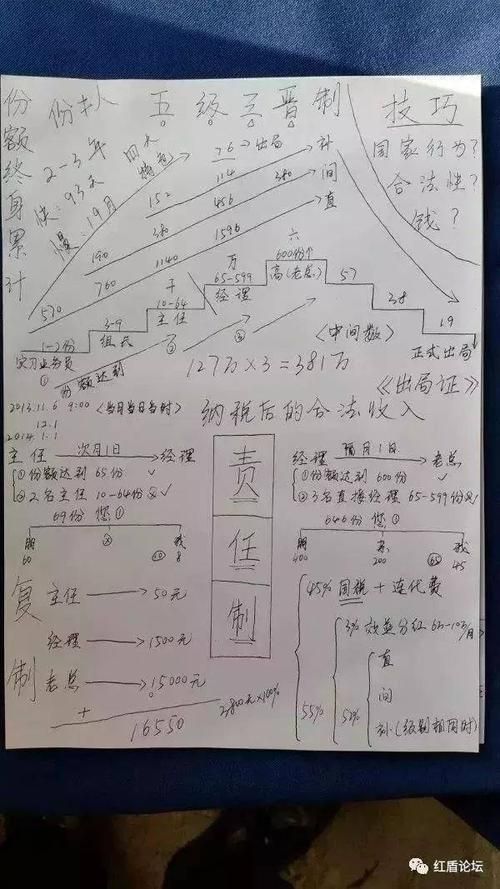 份额终身累计
份 卡 人
五 级 三 晋 制
技巧
国家行为?
合法性?
钱?
2-3年
快:93天
慢:19月
四大
76 出局
补
152 114 380
间
190 380 456
直
570 760 1140 1596
1-2份
实习业务员
①
3-9
组长
千
10-64
主任
②
万
65-599
经理
③
六
600份个
高(老总)
57
38
19
正式出局
份额达到
<中间数>
127万×3=381万
《出局证》
2013.11.6 9:00 <当月当日当时>
12.1
2014.1.1
纳税后的合法收入
主任 次月1日 经理
①份额达到 65份 ✓
②2名主任 10-64份 ✓
69份 您①
60
8
责
任
制
经理 隔月1日 老总
①份额达到 600份 ✓
②3名直接经理 65-599份 ✓
646份 您①
400
200
45
复
制
主任 50元
经理 1500元
老总 15000元
+
16550
3800元×100%
45% 国税 + 连代费
55%
3% 效益分红
52%
直
间
补(级别相同时)
红盾论坛